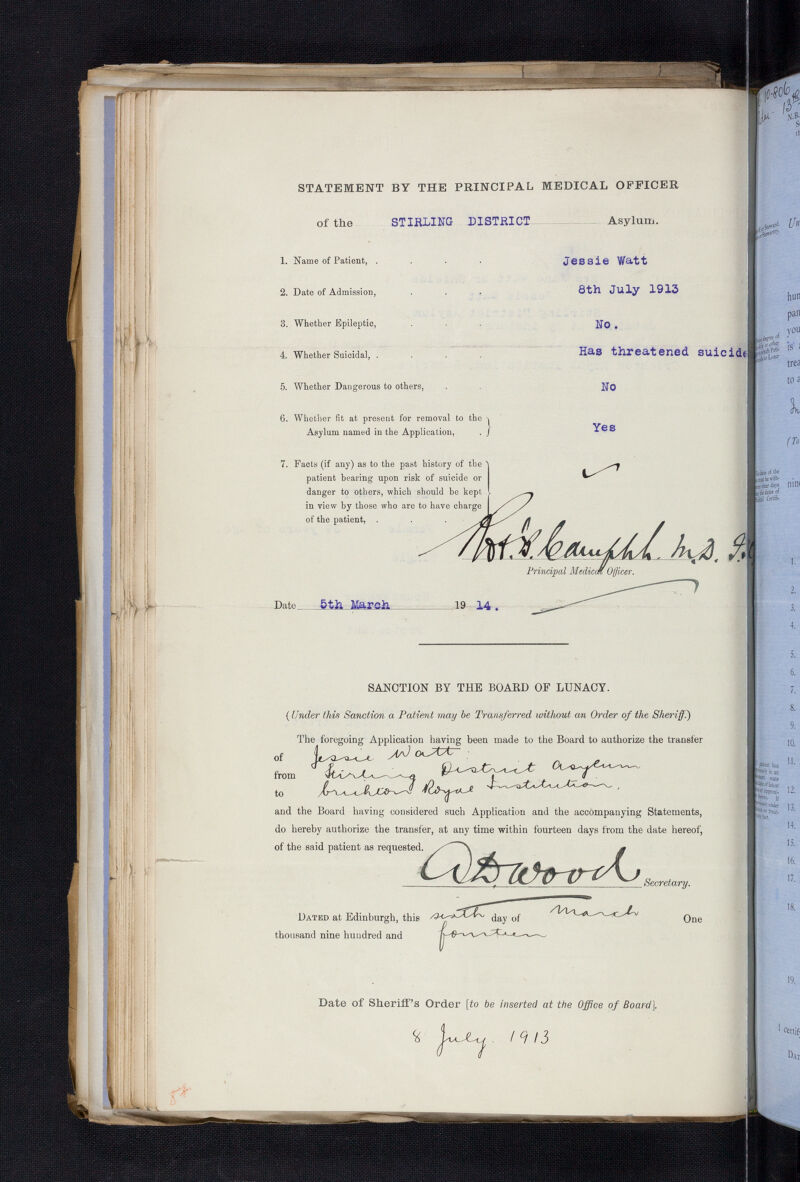 STATEMENT BY THE PRINCIPAL MEDICAL OFFICER
of the STIRLING DISTRICT Asylum.
1. Name of Patient, . . . . Jessie Watt
2. Date of Admission, . . . 8th July 1913
3. Whether Epileptic, . . . No.
4. Whether Suicidal, . . . . Has threatened suicide
5. Whether Dangerous to others, . . No
6. Whether fit at present for removal to the
Asylum named in the Application, . Yes
7. Facts (if any) as to the past history of the
patient bearing upon risk of suicide or
danger to others, which should be kept
in view by those who are to have charge
of the patient, . . .
Robt. B. Campbell. M.D. F.
Principal Medical Officer.
Date 5th March 19 14.
SANCTION BY THE BOARD OF LUNACY.
(Under this Sanction a Patient may be Transferred without an Order of the Sheriff.)
The foregoing Application having been made to the Board to authorize the transfer
of Jessie Watt
from Stirling District Asylum
to Crichton Royal Institution.
and the Board having considered such Application and the accompanying Statements,
do hereby authorize the transfer, at any time within fourteen days from the date hereof,
of the said patient as requested.
A D Wood Secretary.
DATED at Edinburgh, this sixth day of March One
thousand nine hundred and fourteen
Date of Sheriff's Order [to be inserted at the Office of Board].
8 July. 1913